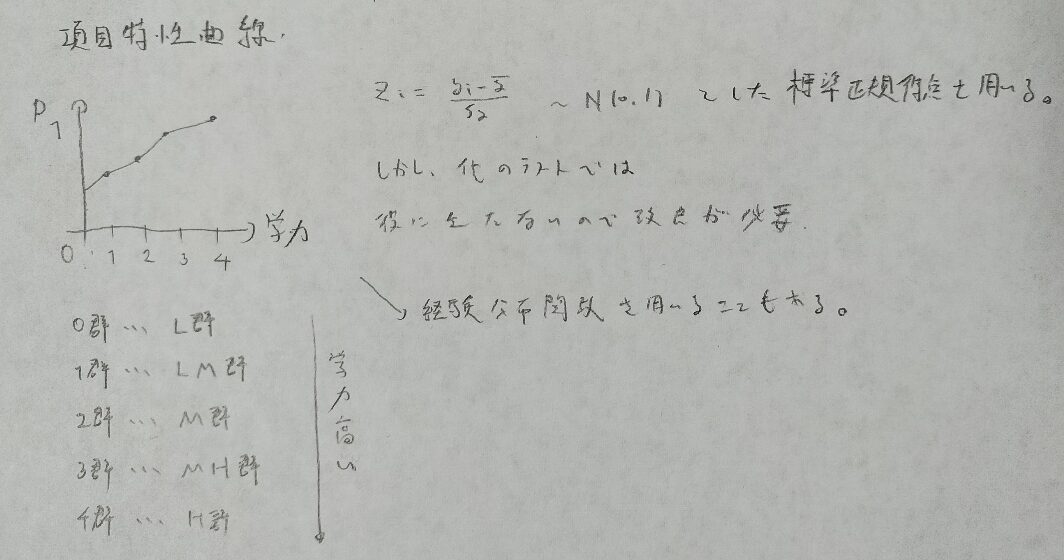 項目特性曲線.
P
1
0 1 2 3 4 学力
0群 … L群
1群 … LM群
2群 … M群
3群 … MH群
4群 … H群
学力高い
Zi = ~ N(0.1) とした 標準正規得点を用いる。
しかし、他のテストでは
役に立たないので改良が必要.
経験分布関数を用いることもある。